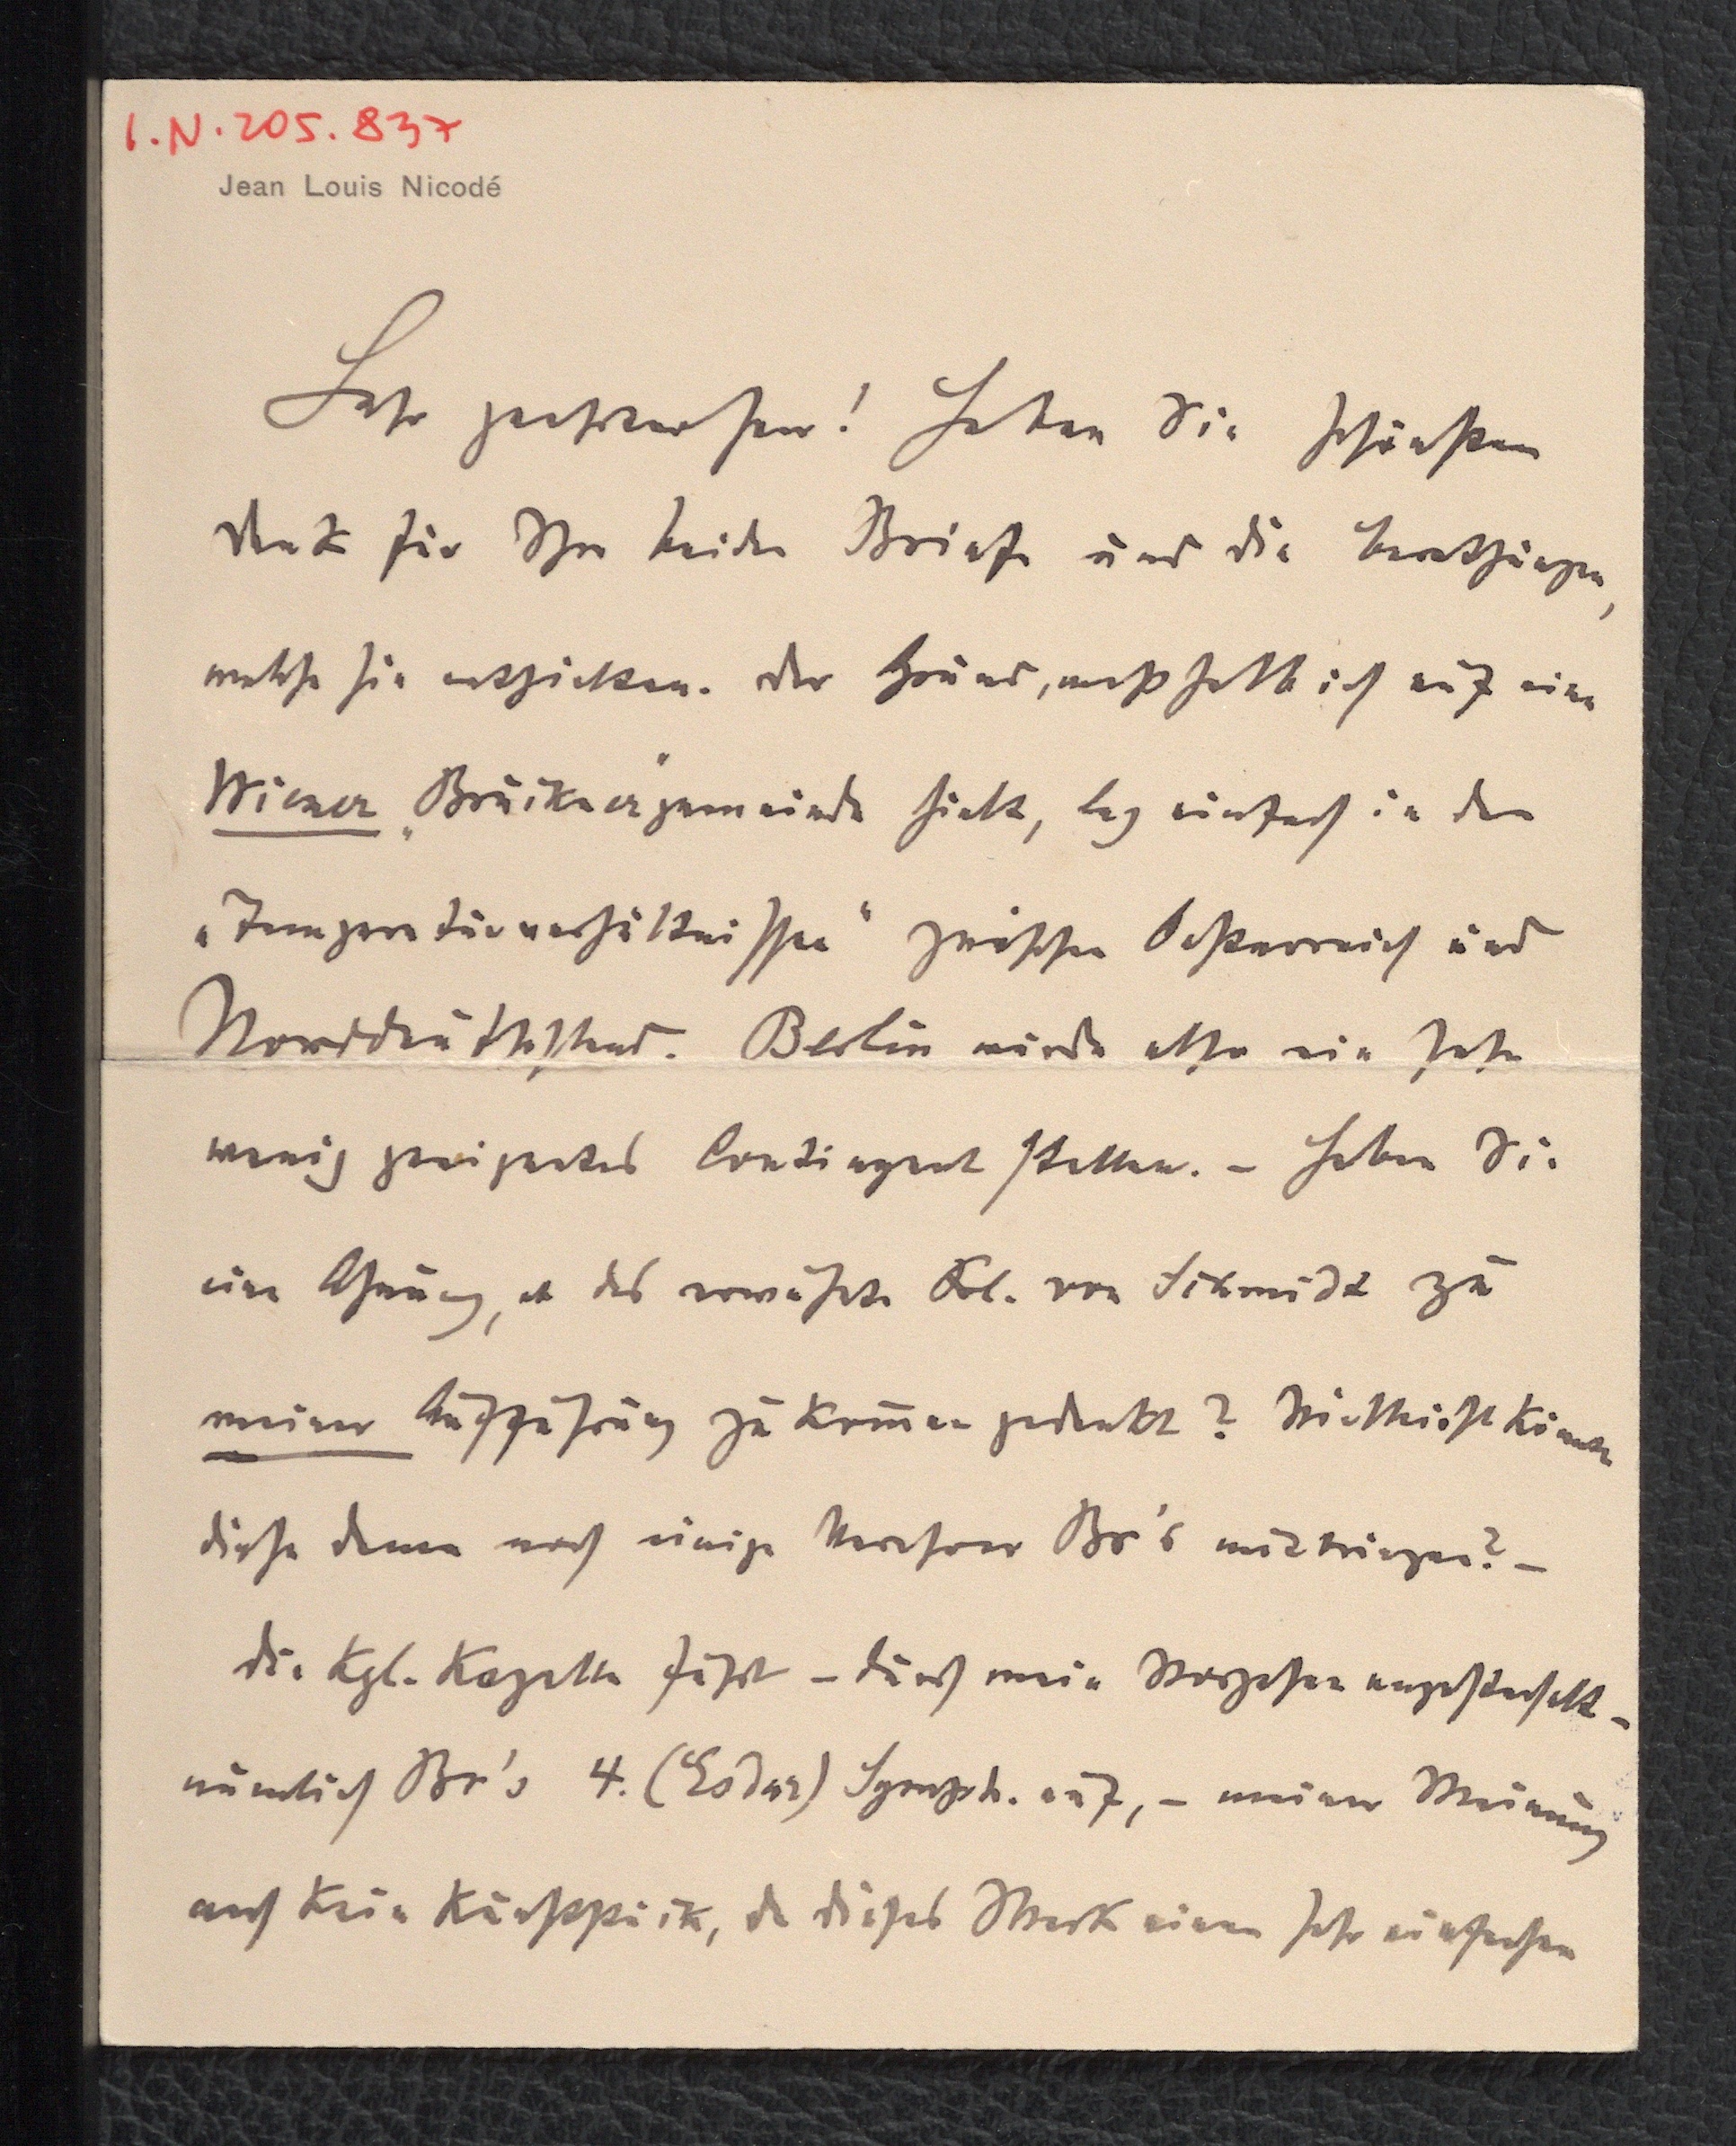 I.N. 205.837
Jean Louis Nicodé
Sehr geehrter Herr! Haben Sie schönsten
Dank für Ihre beiden Briefe und die
welche sie enthielten. Der Grund, weßhalb ich auf eine
Wiener „Brucknergemeinde" hielt, lag einfach in den
„Temperaturverhältnissen" zwischen Oesterreich und
Norddeutschland. Berlin würde also ein sehr
wenig geeignetes Contingent stellen. – Haben Sie
eine Ahnung, ob das erwähnte Frl. von Schmidt zu
meiner Aufführung zu kommen gedenkt? Vielleicht könnte
diese Dame noch einige Verehrer Br's mitbringen? –
Die Kgl. Kapelle führt – durch mein Vorgehen angestachelt –
nämlich Br's 4. (Esdur) Symph. auf, – meiner Meinung
nach kein Kunststück, da dieses Werk einen sehr einfachen